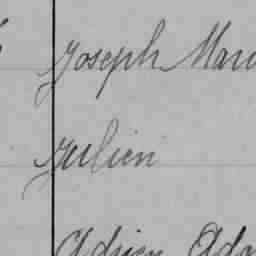 Joseph Mari
Julien
Adrien Ado